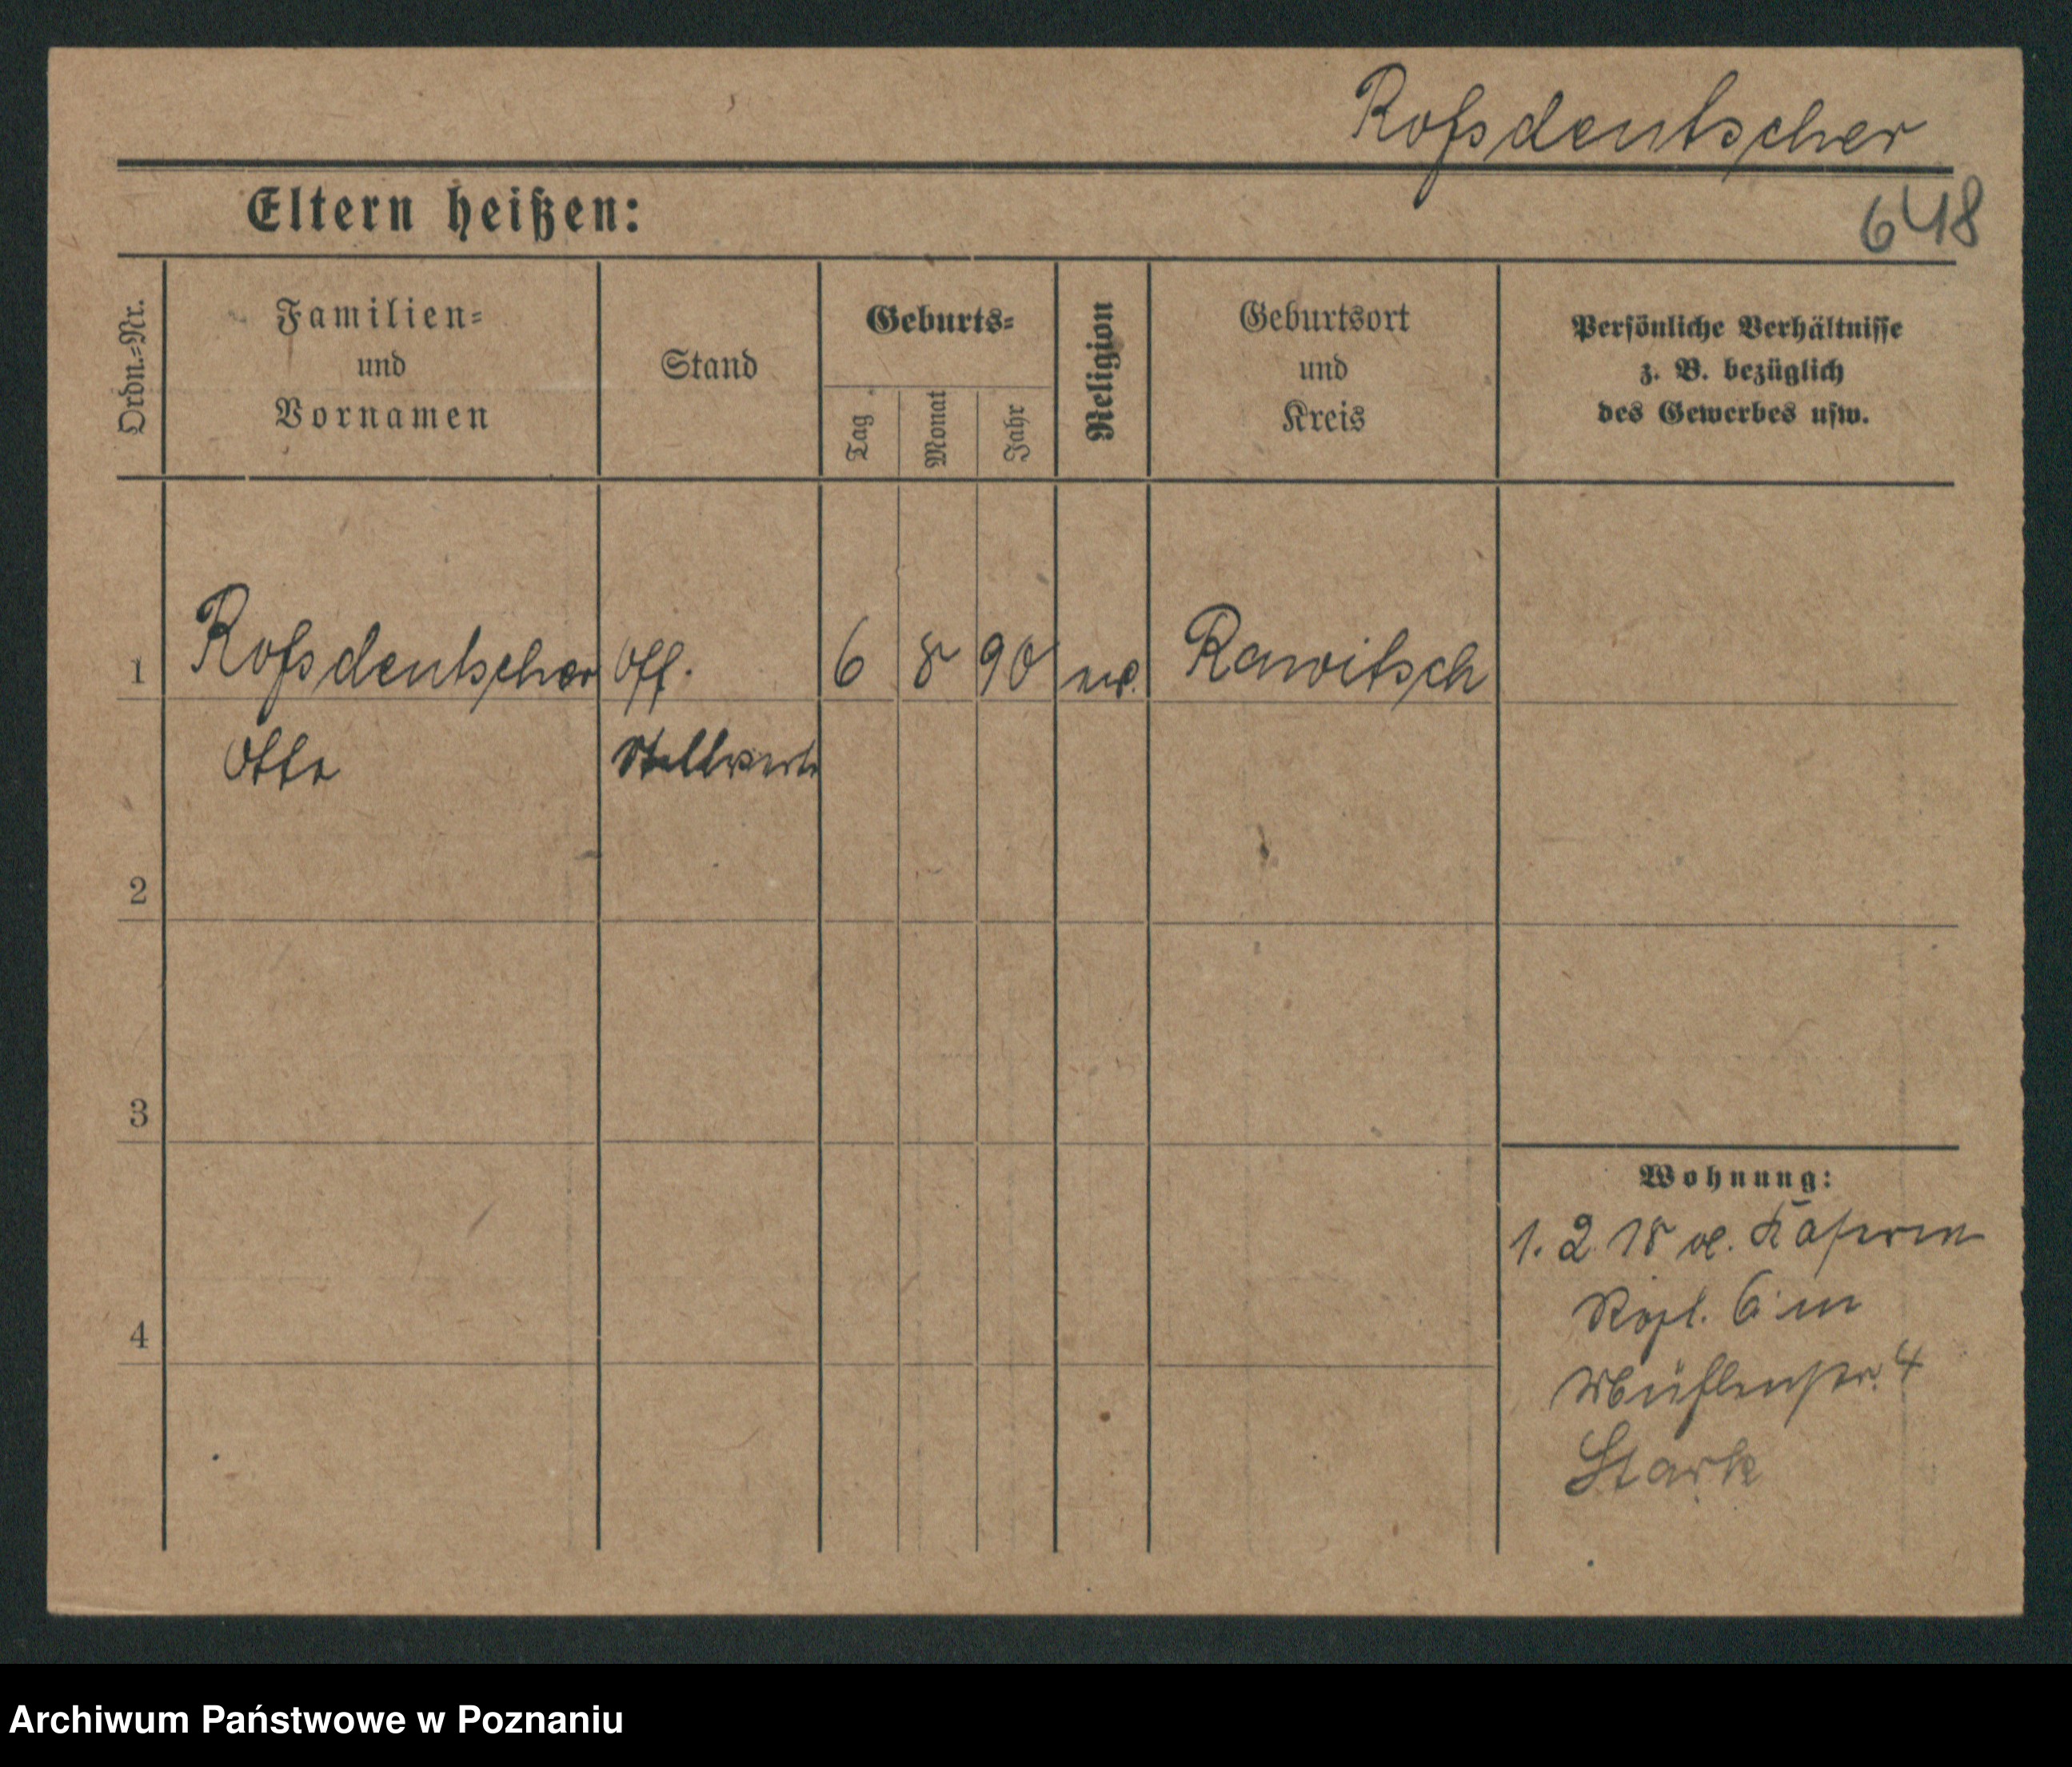 Roßdeutscher
Eltern heißen:
648
Ordn.=Nr.
Familien=
und
Vornamen
Stand
Geburts=
Tag
Monat
Jahr
Religion
Geburtsort
und
Kreis
Persönliche Verhältnisse
z. B. bezüglich
des Gewerbes usw.
1 Roßdeutscher Off. 6 8 90 ev. Rawitsch
Otto Stellvertr
2
3
4
Wohnung:
1. 2 18
6
Mühlenstr. 4
Stark
Archiwum Państwowe w Poznaniu